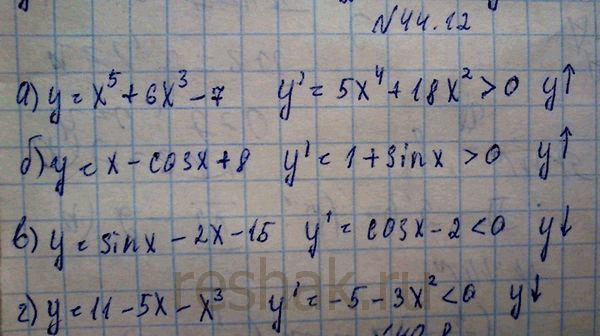 №44.12
а) y = x⁵ + 6x³ - 7 y' = 5x⁴ + 18x² > 0 y↑
б) y = x - cosx + 8 y' = 1 + sinx > 0 y↑
в) y = sinx - 2x - 15 y' = cosx - 2 < 0 y↓
reshak.ru
г) y = 11 - 5x - x³ y' = -5 - 3x² < 0 y↓